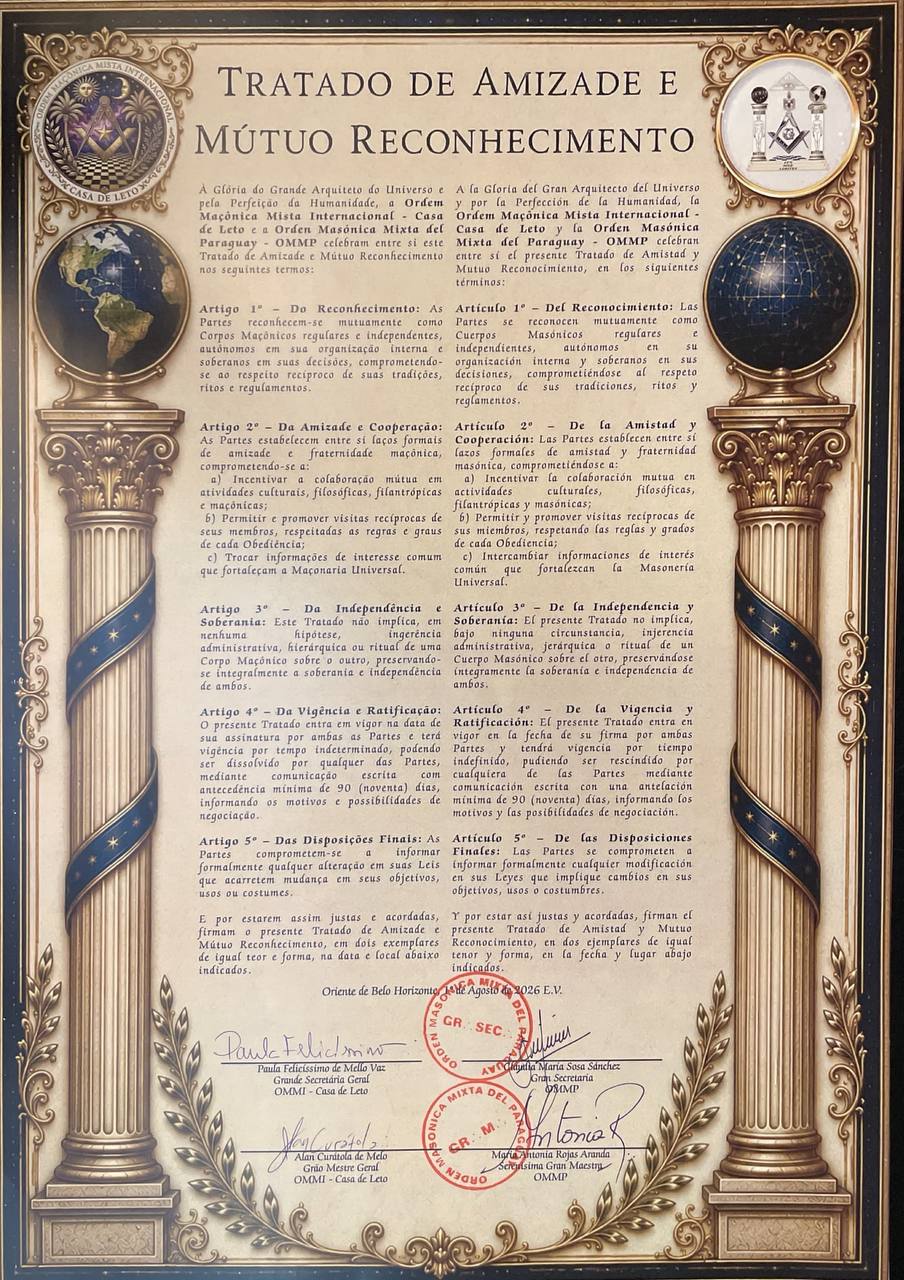 TRATADO DE AMIZADE E
MÚTUO RECONHECIMENTO
ORDEM MAÇÔNICA MISTA INTERNACIONAL
CASA DE LETO
À Glória do Grande Arquiteto do Universo e
pela Perfeição da Humanidade, a Ordem
Maçônica Mista Internacional - Casa
de Leto e a Orden Masónica Mixta del
Paraguay - OMMP celebram entre si este
Tratado de Amizade e Mútuo Reconhecimento
nos seguintes termos:
Artigo 1º – Do Reconhecimento: As
Partes reconhecem-se mutuamente como
Corpos Maçônicos regulares e independentes,
autônomos em sua organização interna e
soberanos em suas decisões, comprometendo-
se ao respeito recíproco de suas tradições,
ritos e regulamentos.
Artigo 2º – Da Amizade e Cooperação:
As Partes estabelecem entre si laços formais
de amizade e fraternidade maçônica,
comprometendo-se a:
a) Incentivar a colaboração mútua em
atividades culturais, filosóficas, filantrópicas
e maçônicas;
b) Permitir e promover visitas recíprocas de
seus membros, respeitadas as regras e graus
de cada Obediência;
c) Trocar informações de interesse comum
que fortaleçam a Maçonaria Universal.
Artigo 3º – Da Independência e
Soberania: Este Tratado não implica, em
nenhuma hipótese, ingerência
administrativa, hierárquica ou ritual de uma
Corpo Maçônico sobre o outro, preservando-
se integralmente a soberania e independência
de ambos.
Artigo 4º – Da Vigência e Ratificação:
O presente Tratado entra em vigor na data de
sua assinatura por ambas as Partes e terá
vigência por tempo indeterminado, podendo
ser dissolvido por qualquer das Partes,
mediante comunicação escrita com
antecedência mínima de 90 (noventa) dias,
informando os motivos e possibilidades de
negociação.
Artigo 5º – Das Disposições Finais: As
Partes comprometem-se a informar
formalmente qualquer alteração em suas Leis
que acarretem mudança em seus objetivos,
usos ou costumes.
E por estarem assim justas e acordadas,
firmam o presente Tratado de Amizade e
Mútuo Reconhecimento, em dois exemplares
de igual teor e forma, na data e local abaixo
indicados.
A la Gloria del Gran Arquitecto del Universo
y por la Perfección de la Humanidad, la
Ordem Maçônica Mista Internacional -
Casa de Leto y la Orden Masónica
Mixta del Paraguay - OMMP celebran
entre sí el presente Tratado de Amistad y
Mutuo Reconocimiento, en los siguientes
términos:
Artículo 1º – Del Reconocimiento: Las
Partes se reconocen mutuamente como
Cuerpos Masónicos regulares e
independientes, autónomos en su
organización interna y soberanos en sus
decisiones, comprometiéndose al respeto
recíproco de sus tradiciones, ritos y
reglamentos.
Artículo 2º – De la Amistad y
Cooperación: Las Partes establecen entre sí
lazos formales de amistad y fraternidad
masónica, comprometiéndose a:
a) Incentivar la colaboración mutua en
actividades culturales, filosóficas,
filantrópicas y masónicas;
b) Permitir y promover visitas recíprocas de
sus miembros, respetando las reglas y grados
de cada Obediencia;
c) Intercambiar informaciones de interés
común que fortalezcan la Masonería
Universal.
Artículo 3º – De la Independencia y
Soberanía: El presente Tratado no implica,
bajo ninguna circunstancia, injerencia
administrativa, jerárquica o ritual de un
Cuerpo Masónico sobre el otro, preservándose
íntegramente la soberanía e independencia de
ambos.
Artículo 4º – De la Vigencia y
Ratificación: El presente Tratado entra en
vigor en la fecha de su firma por ambas
Partes y tendrá vigencia por tiempo
indefinido, pudiendo ser rescindido por
cualquiera de las Partes mediante
comunicación escrita con una antelación
mínima de 90 (noventa) días, informando los
motivos y las posibilidades de negociación.
Artículo 5º – De las Disposiciones
Finales: Las Partes se comprometen a
informar formalmente cualquier modificación
en sus Leyes que implique cambios en sus
objetivos, usos o costumbres.
Y por estar así justas y acordadas, firman el
presente Tratado de Amistad y Mutuo
Reconocimiento, en dos ejemplares de igual
tenor y forma, en la fecha y lugar abajo
indicados.
Oriente de Belo Horizonte, 1º de Agosto de 2026 E.V.
ORDEN MASONICA MIXTA DEL PARAGUAY
GR. SEC.
Paula Felicissimo
Paula Felicíssimo de Mello Vaz
Grande Secretária Geral
OMMI - Casa de Leto
Claudia María Sosa Sánchez
Gran Secretaria
OMMP
ORDEN MASONICA MIXTA DEL PARAGUAY
GR. M.
Alan Curátola
Alan Curátola de Melo
Grão Mestre Geral
OMMI - Casa de Leto
Antonia R
María Antonia Rojas Aranda
Serenísima Gran Maestra
OMMP